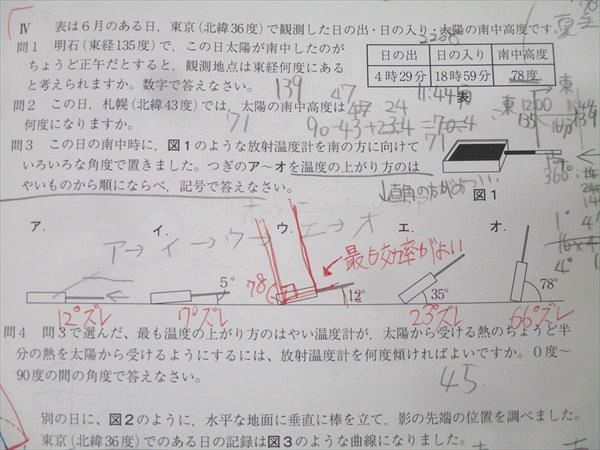 Ⅳ 表は6月のある日，東京(北緯36度)で観測した日の出・日の入り・太陽の南中高度です。
問1 明石(東経135度)で，この日太陽が南中したのが
ちょうど正午だとすると，観測地点は東経何度にある
と考えられますか。数字で答えなさい。
139
日の出 日の入り 南中高度
4時29分 18時59分 78度
11:44
表
問2 この日，札幌(北緯43度)では，太陽の南中高度は
何度になりますか。
71
47
24
90-43+23.4=70.4
71
問3 この日の南中時に，図1のような放射温度計を南の方に向けて
いろいろな角度で置きました。つぎのア〜オを温度の上がり方のは
やいものから順にならべ，記号で答えなさい。
図1
東
1200
135
139
360°
1°
4°
夏至
ア→イ→ウ→エ→オ
ア． イ． ウ． エ． オ．
最も効率がよい
5°
78°
12°
35°
78°
12°ズレ
7°ズレ
23°ズレ
66°ズレ
問4 問3で選んだ，最も温度の上がり方のはやい温度計が，太陽から受ける熱のちょうど半
分の熱を太陽から受けるようにするには，放射温度計を何度傾ければよいですか。0度〜
90度の間の角度で答えなさい。
45
別の日に，図2のように，水平な地面に垂直に棒を立て，影の先端の位置を調べました。
東京(北緯36度)でのある日の記録は図3のような曲線になりました。